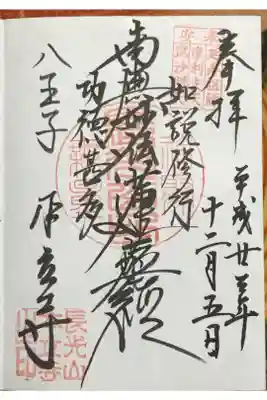 奉拝
平成廿年
十二月五日
如説修行
南無妙法蓮華経
功徳甚多
八王子 本立寺
長光山